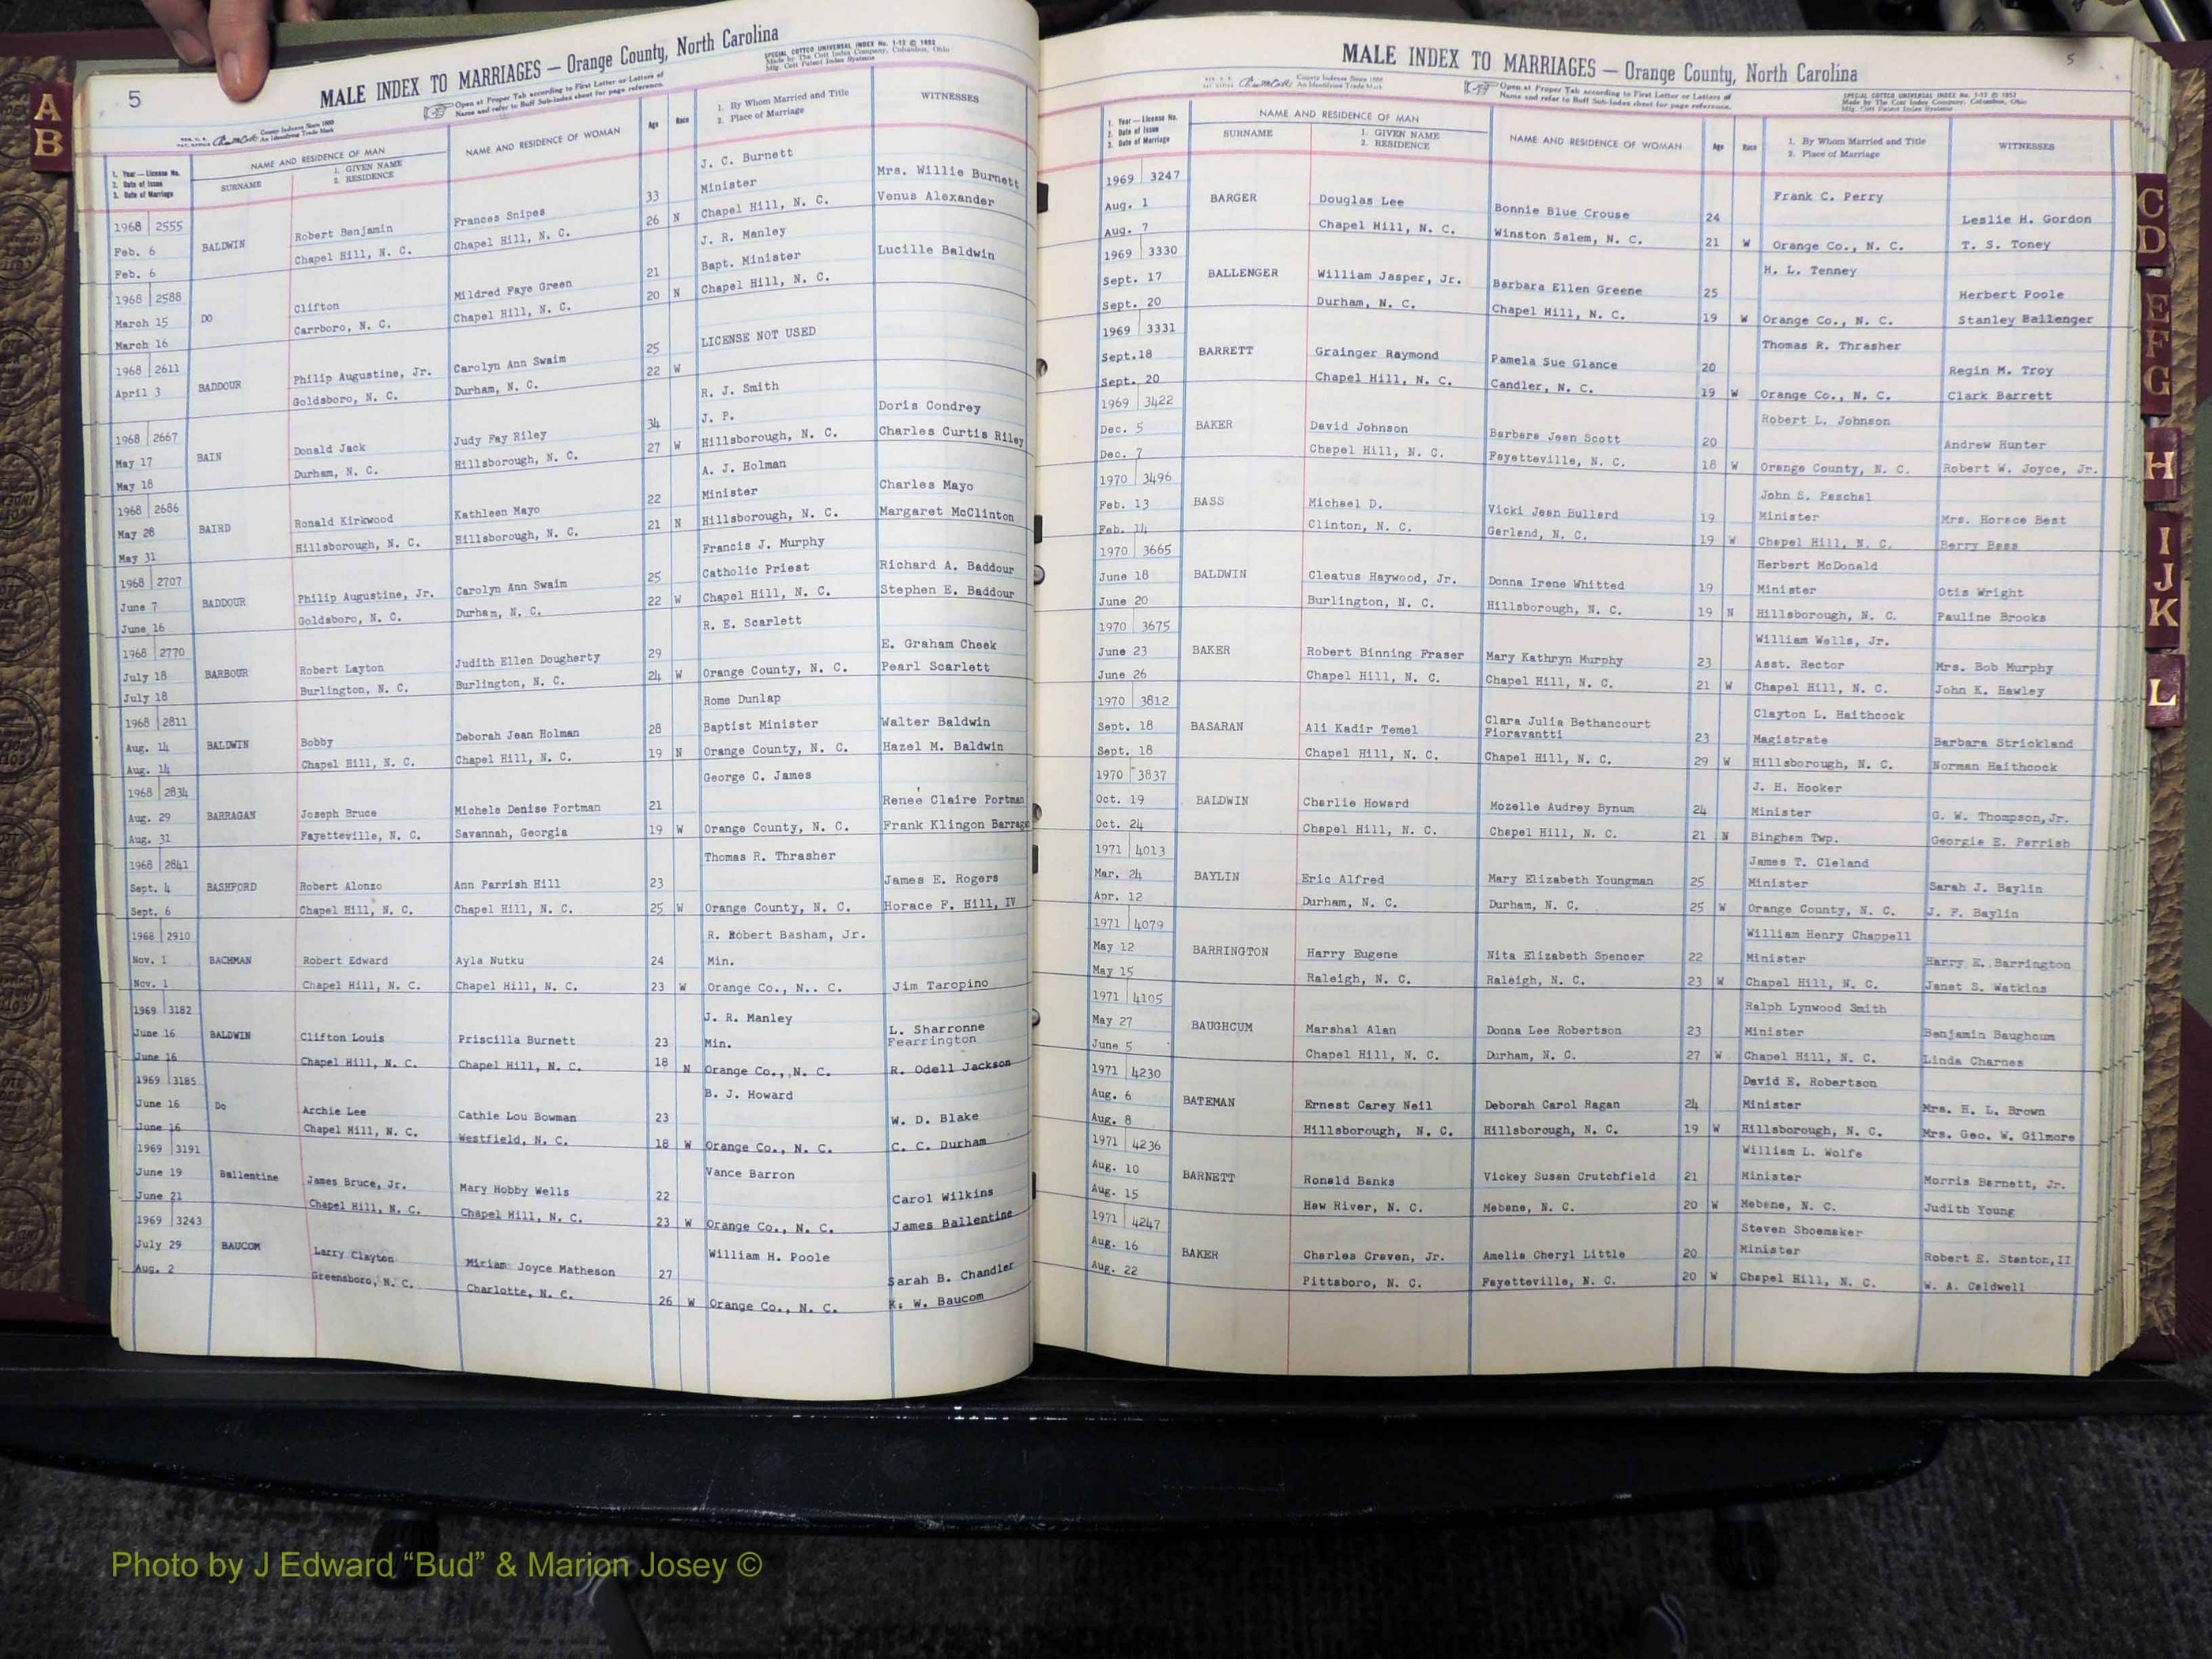 5
MALE INDEX TO MARRIAGES — Orange County, North Carolina
SPECIAL COTTCO UNIVERSAL INDEX No. 1-12 © 1952
Made by The Cott Index Company, Columbus, Ohio
Mfg. Cott Patent Index Systems
County Indexes Since 1888
An Identifying Trade Mark
Open at Proper Tab according to First Letter or Letters of
Name and refer to Buff Sub-Index sheet for page reference.
1. Year — License No.
2. Date of Issue
3. Date of Marriage
NAME AND RESIDENCE OF MAN
SURNAME
1. GIVEN NAME
2. RESIDENCE
NAME AND RESIDENCE OF WOMAN
Age
Race
1. By Whom Married and Title
2. Place of Marriage
WITNESSES
J. C. Burnett
33 Minister Mrs. Willie Burnett
1968 2555 Frances Snipes 26 N Chapel Hill, N. C. Venus Alexander
Feb. 6 BALDWIN Robert Benjamin Chapel Hill, N. C.
Feb. 6 Chapel Hill, N. C.
J. R. Manley
21 Bapt. Minister Lucille Baldwin
1968 2588 Mildred Faye Green 20 N Chapel Hill, N. C.
March 15 DO Clifton Chapel Hill, N. C.
March 16 Carrboro, N. C.
25 LICENSE NOT USED
1968 2611 Carolyn Ann Swaim 22 W
April 3 BADDOUR Philip Augustine, Jr. Durham, N. C.
Goldsboro, N. C.
R. J. Smith
34 J. P. Doris Condrey
1968 2667 Judy Fay Riley 27 W Hillsborough, N. C. Charles Curtis Riley
May 17 BAIN Donald Jack Hillsborough, N. C.
May 18 Durham, N. C.
A. J. Holman
22 Minister Charles Mayo
1968 2686 Kathleen Mayo 21 N Hillsborough, N. C. Margaret McClinton
May 28 BAIRD Ronald Kirkwood Hillsborough, N. C.
May 31 Hillsborough, N. C.
Francis J. Murphy
25 Catholic Priest Richard A. Baddour
1968 2707 Carolyn Ann Swaim 22 W Chapel Hill, N. C. Stephen E. Baddour
June 7 BADDOUR Philip Augustine, Jr. Durham, N. C.
June 16 Goldsboro, N. C.
R. E. Scarlett
29 E. Graham Cheek
1968 2770 Judith Ellen Dougherty 24 W Orange County, N. C. Pearl Scarlett
July 18 BARBOUR Robert Layton Burlington, N. C.
July 18 Burlington, N. C.
Rome Dunlap
1968 2811 Deborah Jean Holman 28 Baptist Minister Walter Baldwin
Aug. 14 BALDWIN Bobby Chapel Hill, N. C. 19 N Orange County, N. C. Hazel M. Baldwin
Aug. 14 Chapel Hill, N. C.
George C. James
1968 2834 Michele Denise Portman 21 Renee Claire Portman
Aug. 29 BARRAGAN Joseph Bruce Savannah, Georgia 19 W Orange County, N. C. Frank Klingon Barragan
Aug. 31 Fayetteville, N. C.
1968 2841 Thomas R. Thrasher
Sept. 4 BASHFORD Robert Alonzo Ann Parrish Hill 23 James E. Rogers
Sept. 6 Chapel Hill, N. C. Chapel Hill, N. C. 25 W Orange County, N. C. Horace F. Hill, IV
1968 2910 R. Robert Basham, Jr.
Nov. 1 BACHMAN Robert Edward Ayla Nutku 24 Min.
Nov. 1 Chapel Hill, N. C. Chapel Hill, N. C. 23 W Orange Co., N.. C. Jim Taropino
1969 3182 J. R. Manley L. Sharronne
June 16 BALDWIN Clifton Louis Priscilla Burnett 23 Min. Fearrington
June 16 Chapel Hill, N. C. Chapel Hill, N. C. 18 N Orange Co., N. C. R. Odell Jackson
1969 3185 B. J. Howard
June 16 Do Archie Lee Cathie Lou Bowman 23 W. D. Blake
June 16 Chapel Hill, N. C. Westfield, N. C. 18 W Orange Co., N. C. C. C. Durham
1969 3191 Vance Barron
June 19 Ballentine James Bruce, Jr. Mary Hobby Wells 22 Carol Wilkins
June 21 Chapel Hill, N. C. Chapel Hill, N. C. 23 W Orange Co., N. C. James Ballentine
1969 3243 William H. Poole
July 29 BAUCOM Larry Clayton Miriam Joyce Matheson 27 Sarah B. Chandler
Aug. 2 Greensboro, N. C. Charlotte, N. C. 26 W Orange Co., N. C. K. W. Baucom
5
MALE INDEX TO MARRIAGES — Orange County, North Carolina
County Indexes Since 1888
An Identifying Trade Mark
Open at Proper Tab according to First Letter or Letters of
Name and refer to Buff Sub-Index sheet for page reference.
SPECIAL COTTCO UNIVERSAL INDEX No. 1-12 © 1952
Made by The Cott Index Company, Columbus, Ohio
Mfg. Cott Patent Index Systems
1. Year — License No.
2. Date of Issue
3. Date of Marriage
NAME AND RESIDENCE OF MAN
SURNAME
1. GIVEN NAME
2. RESIDENCE
NAME AND RESIDENCE OF WOMAN
Age
Race
1. By Whom Married and Title
2. Place of Marriage
WITNESSES
1969 3247 Frank C. Perry
Aug. 1 BARGER Douglas Lee Bonnie Blue Crouse 24 Leslie H. Gordon
Aug. 7 Chapel Hill, N. C. Winston Salem, N. C. 21 W Orange Co., N. C. T. S. Toney
1969 3330 H. L. Tenney
Sept. 17 BALLENGER William Jasper, Jr. Barbara Ellen Greene 25 Herbert Poole
Sept. 20 Durham, N. C. Chapel Hill, N. C. 19 W Orange Co., N. C. Stanley Ballenger
1969 3331 Thomas R. Thrasher
Sept.18 BARRETT Grainger Raymond Pamela Sue Glance 20 Regin M. Troy
Sept. 20 Chapel Hill, N. C. Candler, N. C. 19 W Orange Co., N. C. Clark Barrett
1969 3422 Robert L. Johnson
Dec. 5 BAKER David Johnson Barbara Jean Scott 20 Andrew Hunter
Dec. 7 Chapel Hill, N. C. Fayetteville, N. C. 18 W Orange County, N. C. Robert W. Joyce, Jr.
1970 3496 John S. Paschal
Feb. 13 BASS Michael D. Vicki Jean Bullard 19 Minister Mrs. Horace Best
Feb. 14 Clinton, N. C. Garland, N. C. 19 W Chapel Hill, N. C. Berry Bass
1970 3665 Herbert McDonald
June 18 BALDWIN Cleatus Haywood, Jr. Donna Irene Whitted 19 Minister Otis Wright
June 20 Burlington, N. C. Hillsborough, N. C. 19 N Hillsborough, N. C. Pauline Brooks
1970 3675 William Wells, Jr.
June 23 BAKER Robert Binning Fraser Mary Kathryn Murphy 23 Asst. Rector Mrs. Bob Murphy
June 26 Chapel Hill, N. C. Chapel Hill, N. C. 21 W Chapel Hill, N. C. John K. Hawley
1970 3812 Clayton L. Haithcock
Sept. 18 BASARAN Ali Kadir Temel Clara Julia Bethancourt Fioravantti 23 Magistrate Barbara Strickland
Sept. 18 Chapel Hill, N. C. Chapel Hill, N. C. 29 W Hillsborough, N. C. Norman Haithcock
1970 3837 J. H. Hooker
Oct. 19 BALDWIN Charlie Howard Mozelle Audrey Bynum 24 Minister G. W. Thompson,Jr.
Oct. 24 Chapel Hill, N. C. Chapel Hill, N. C. 21 N Bingham Twp. Georgie E. Parrish
1971 4013 James T. Cleland
Mar. 24 BAYLIN Eric Alfred Mary Elizabeth Youngman 25 Minister Sarah J. Baylin
Apr. 12 Durham, N. C. Durham, N. C. 25 W Orange County, N. C. J. F. Baylin
1971 4079 William Henry Chappell
May 12 BARRINGTON Harry Eugene Nita Elizabeth Spencer 22 Minister Harry E. Barrington
May 15 Raleigh, N. C. Raleigh, N. C. 23 W Chapel Hill, N. C. Janet S. Watkins
1971 4105 Ralph Lynwood Smith
May 27 BAUGHCUM Marshal Alan Donna Lee Robertson 23 Minister Benjamin Baughcum
June 5 Chapel Hill, N. C. Durham, N. C. 27 W Chapel Hill, N. C. Linda Charnes
1971 4230 David E. Robertson
Aug. 6 BATEMAN Ernest Carey Neil Deborah Carol Ragan 24 Minister Mrs. H. L. Brown
Aug. 8 Hillsborough, N. C. Hillsborough, N. C. 19 W Hillsborough, N. C. Mrs. Geo. W. Gilmore
1971 4236 William L. Wolfe
Aug. 10 BARNETT Ronald Banks Vickey Susan Crutchfield 21 Minister Morris Barnett, Jr.
Aug. 15 Haw River, N. C. Mebane, N. C. 20 W Mebane, N. C. Judith Young
1971 4247 Steven Shoemaker
Aug. 16 BAKER Charles Craven, Jr. Amelia Cheryl Little 20 Minister Robert E. Stanton,II
Aug. 22 Pittsboro, N. C. Fayetteville, N. C. 20 W Chapel Hill, N. C. W. A. Caldwell
A
B
C
D
E
F
G
H
I
J
K
L
Photo by J Edward “Bud” & Marion Josey ©